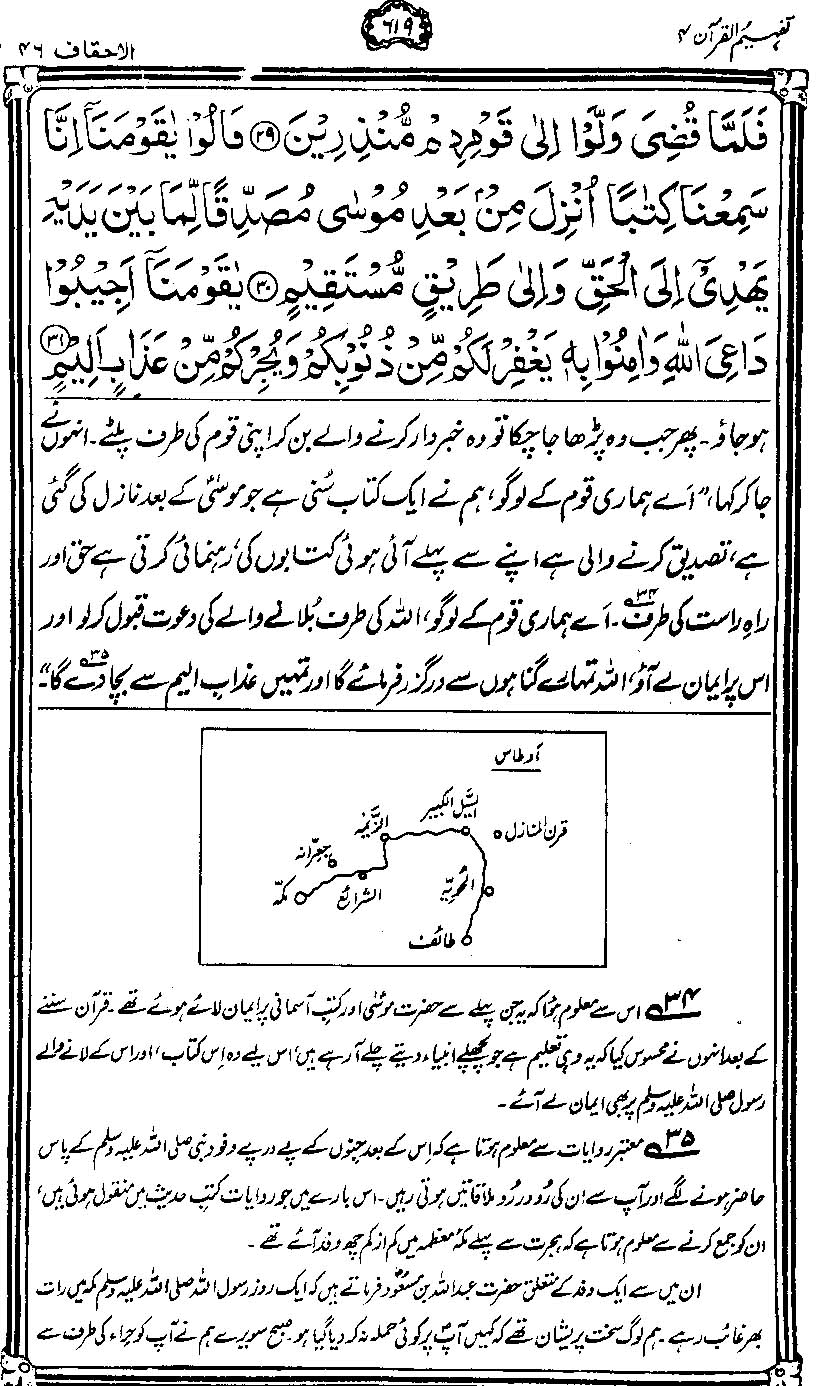 تفہیم القرآن ۴
۶۱۹
الاحقاف ۴۶
فَلَمَّا قُضِيَ وَلَّوْا اِلٰى قَوْمِهِمْ مُّنْذِرِيْنَ ۲۹ قَالُوْا يٰقَوْمَنَآ اِنَّا
سَمِعْنَا كِتٰبًا اُنْزِلَ مِنْۢ بَعْدِ مُوْسٰى مُصَدِّقًا لِّمَا بَيْنَ يَدَيْهِ
يَهْدِيْٓ اِلَى الْحَقِّ وَاِلٰى طَرِيْقٍ مُّسْتَقِيْمٍ ۳۰ يٰقَوْمَنَآ اَجِيْبُوْا
دَاعِيَ اللّٰهِ وَاٰمِنُوْا بِهٖ يَغْفِرْ لَكُمْ مِّنْ ذُنُوْبِكُمْ وَيُجِرْكُمْ مِّنْ عَذَابٍ اَلِيْمٍ ۳۱
ہو جاؤ۔ پھر جب وہ پڑھا جا چکا تو وہ خبردار کرنے والے بن کر اپنی قوم کی طرف پلٹے۔ انہوں نے
جا کر کہا، ”اَے ہماری قوم کے لوگو، ہم نے ایک کتاب سُنی ہے جو موسیٰؑ کے بعد نازل کی گئی
ہے، تصدیق کرنے والی ہے اپنے سے پہلے آئی ہوئی کتابوں کی، رہنمائی کرتی ہے حق اور
راہِ راست کی طرف۳۴۔ اَے ہماری قوم کے لوگو، اللہ کی طرف بُلانے والے کی دعوت قبول کر لو اور
اس پر ایمان لے آؤ، اللہ تمہارے گناہوں سے درگزر فرمائے گا اور تمہیں عذابِ الیم سے بچا دے گا۳۵“۔
اَوطاس
السَّیل الکبیر
قرن المنازل
الزَّیمہ
جعرّانہ
مکّہ
الشرائع
طائف
۳۴ اس سے معلوم ہؤا کہ یہ جن پہلے سے حضرت موسیٰؑ اور کتبِ آسمانی پر ایمان لائے ہوئے تھے۔ قرآن سننے
کے بعد انہوں نے محسوس کیا کہ یہ وہی تعلیم ہے جو پچھلے انبیاء دیتے چلے آ رہے ہیں، اس لیے وہ اِس کتاب، اور اس کے لانے والے
رسول صلی اللہ علیہ وسلم پر بھی ایمان لے آئے۔
۳۵ معتبر روایات سے معلوم ہوتا ہے کہ اِس کے بعد جِنوں کے پے در پے وفود نبی صلی اللہ علیہ وسلم کے پاس
حاضر ہونے لگے اور آپ سے ان کی رُو در رُو ملاقاتیں ہوتی رہیں۔ اس بارے میں جو روایات کتبِ حدیث میں منقول ہوئی ہیں،
ان کو جمع کرنے سے معلوم ہوتا ہے کہ ہجرت سے پہلے مکۂ معظمہ میں کم از کم چھ وفد آئے تھے۔
ان میں سے ایک وفد کے متعلق حضرت عبداللہ بن مسعودؓ فرماتے ہیں کہ ایک روز رسول اللہ صلی اللہ علیہ وسلم مکہ میں رات
بھر غائب رہے۔ ہم لوگ سخت پریشان تھے کہ کہیں آپؐ پر کوئی حملہ نہ کر دیا گیا ہو۔ صبح سویرے ہم نے آپ کو حِراء کی طرف سے